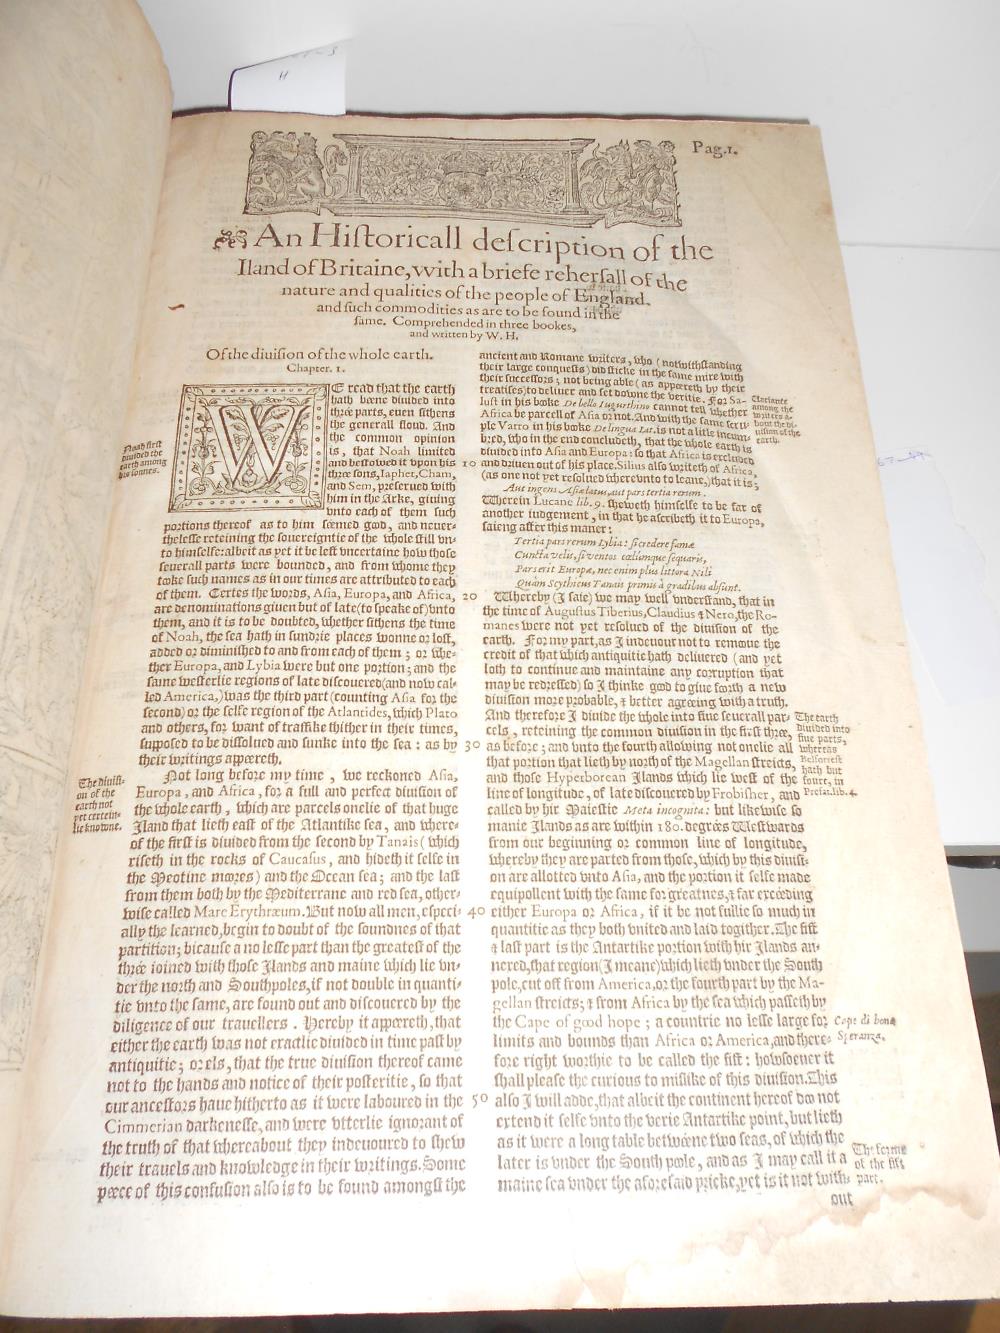 H
Pag.1.
An Hiſtoricall deſcription of the
Iland of Britaine, with a briefe reherſall of the
nature and qualities of the people of England,
and ſuch commodities as are to be found in the
ſame. Comprehended in three bookes,
and written by W. H.
Of the diuiſion of the whole earth.
Chapter. 1.
Noah firſt
diuided the
earth among
his ſonnes.
WE read that the earth
hath béene diuided into
thrée parts, euen ſithens
the generall floud. And
the common opinion
is, that Noah limited
and beſtowed it vpon his
thrée ſons, Iapher, Cham,
and Sem, preſerued with
him in the Arke, giuing
vnto each of them ſuch
portions thereof as to him ſéemed good, and neuer-
theleſſe reteining the ſouereigntie of the whole ſtill vn-
to himſelfe: albeit as yet it be left vncertaine how thoſe
ſeuerall parts were bounded, and from whome they
tooke ſuch names as in our times are attributed to each
of them. Certes the words, Aſia, Europa, and Africa,
are denominations giuen but of late (to ſpeake of) vnto
them, and it is to be doubted, whether ſithens the time
of Noah, the ſea hath in ſundrie places wonne or loſt,
added or diminiſhed to and from each of them; or whe-
ther Europa, and Lybia were but one portion; and the
ſame weſterlie regions of late diſcouered (and now cal-
led America,) was the third part (counting Aſia for the
ſecond) or the ſelfe region of the Atlantides, which Plato
and others, for want of traffike thither in their times,
ſuppoſed to be diſſolued and ſunke into the ſea: as by
their writings appéereth.
The diuiſi-
on of the
earth not
yet certein-
lie knowne.
Not long before my time, we reckoned Aſia,
Europa, and Africa, for a full and perfect diuiſion of
the whole earth, which are parcels onelie of that huge
Iland that lieth eaſt of the Atlantike ſea, and where-
of the firſt is diuided from the ſecond by Tanais (which
riſeth in the rocks of Caucaſus, and hideth it ſelfe in
the Meotine moores) and the Ocean ſea; and the laſt
from them both by the Mediterrane and red ſea, other-
wiſe called Mare Erythræum. But now all men, eſpeci-
ally the learned, begin to doubt of the ſoundnes of that
partition; bicauſe a no leſſe part than the greateſt of the
thrée ioined with thoſe Ilands and maine which lie vn-
der the north and Southpoles, if not double in quanti-
tie vnto the ſame, are found out and diſcouered by the
diligence of our trauellers. Hereby it appéereth, that
either the earth was not exactlie diuided in time paſt by
antiquitie; or els, that the true diuiſion thereof came
not to the hands and notice of their poſteritie, ſo that
our anceſtors haue hitherto as it were laboured in the
Cimmerian darkeneſſe, and were vtterlie ignorant of
the truth of that whereabout they indeuoured to ſhew
their trauels and knowledge in their writings. Some
péece of this confuſion alſo is to be found amongſt the
10
20
30
40
50
ancient and Romane writers, who (notwithſtanding
their large conqueſts) did ſticke in the ſame mire with
their ſucceſſors; not being able (as appéereth by their
treatiſes) to deliuer and ſet downe the veritie. For Sa-
luſt in his booke De bello Iugurthino cannot tell whether
Africa be parcell of Aſia or not. And with the ſame ſcru-
ple Varro in his booke De lingua Lat. is not a little incum-
bred, who in the end concludeth, that the whole earth is
diuided into Aſia and Europa: ſo that Africa is excluded
and driuen out of his place. Silius alſo writeth of Africa,
(as one not yet reſolued wherevnto to leane,) that it is;
Aut ingens Aſiæ latus, aut pars tertia rerum.
Wherein Lucane lib. 9. ſheweth himſelfe to be far of
another iudgement, in that he aſcribeth it to Europa,
ſaieng after this maner:
Tertia pars rerum Lybia: ſi credere famæ
Cuncta velis, ſi ventos cælúmque ſequaris,
Pars erit Europæ, nec enim plus littora Nili
Quàm Scythicus Tanais primis à gradibus abſunt.
Whereby (I ſaie) we may well vnderſtand, that in
the time of Auguſtus Tiberius, Claudius & Nero, the Ro-
manes were not yet reſolued of the diuiſion of the
earth. For my part, as I indeuour not to remooue the
credit of that which antiquitie hath deliuered (and yet
loth to continue and maintaine any corruption that
may be redreſſed) ſo I thinke good to giue foorth a new
diuiſion more probable, & better agréeing with a truth.
And therefore I diuide the whole into fiue ſeuerall par-
cels, reteining the common diuiſion in the firſt thrée,
as before; and vnto the fourth allowing not onelie all
that portion that lieth by north of the Magellan ſtreicts,
and thoſe Hyperborean Ilands which lie weſt of the
line of longitude, of late diſcouered by Frobiſher, and
called by hir Maieſtie Meta incognita: but likewiſe ſo
manie Ilands as are within 180. degrées Weſtwards
from our beginning or common line of longitude,
whereby they are parted from thoſe, which by this diuiſi-
on are allotted vnto Aſia, and the portion it ſelfe made
equipollent with the ſame for greatnes, & far excéeding
either Europa or Africa, if it be not fullie ſo much in
quantitie as they both vnited and laid togither. The fift
& laſt part is the Antartike portion with hir Ilands an-
nexed, that region (I meane) which lieth vnder the South
pole, cut off from America, or the fourth part by the Ma-
gellan ſtreicts; & from Africa by the ſea which paſſeth by
the Cape of good hope; a countrie no leſſe large for
limits and bounds than Africa or America, and there-
fore right worthie to be called the fift: howſoeuer it
ſhall pleaſe the curious to miſlike of this diuiſion. This
alſo I will adde, that albeit the continent hereof doo not
extend it ſelfe vnto the verie Antartike point, but lieth
as it were a long table betwéene two ſeas, of which the
later is vnder the South poole, and as I may call it a
maine ſea vnder the aforeſaid pricke, yet is it not with-
out
Variance
among the
writers a-
bout the di-
uiſion of the
earth.
The earth
diuided into
fiue parts,
whereas
Belforreſt
hath but
foure, in
Prefat. lib. 4.
Cape di bona
Speranza.
The forme
of the fift
part.